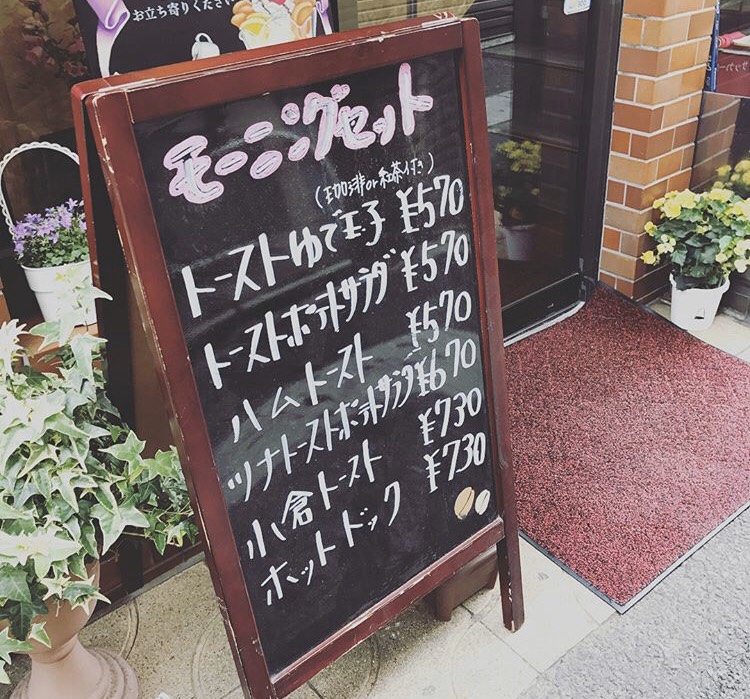 お立ち寄りください
モーニングセット
(珈琲or紅茶付き)
トーストゆで玉子 ¥570
トーストポテトサラダ ¥570
ハムトースト ¥570
ツナトーストポテトサラダ ¥670
小倉トースト ¥730
ホットドック ¥730